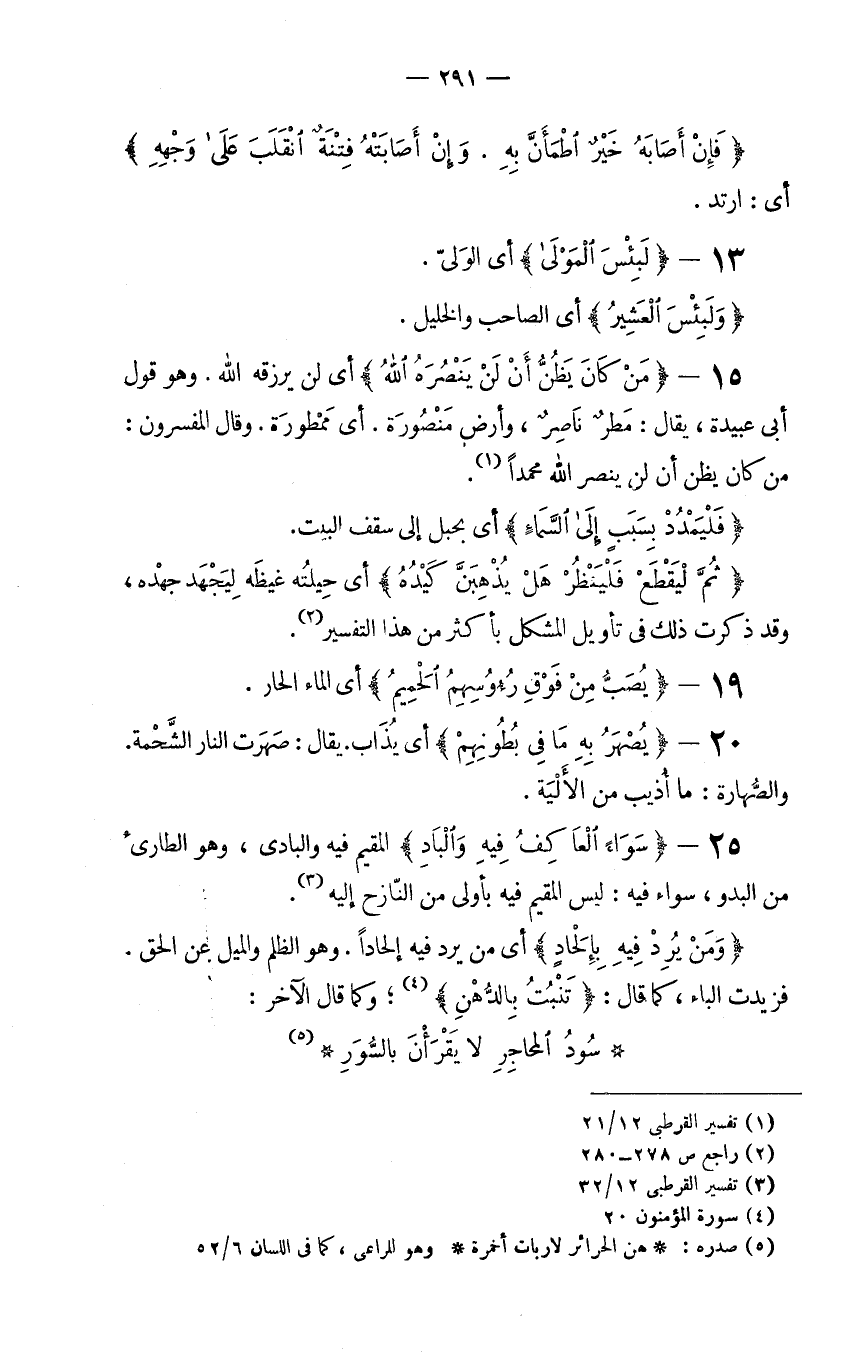 — ٢٩١ —
﴿ فَإِنْ أَصَابَهُ خَيْرٌ ٱطْمَأَنَّ بِهِ . وَإِنْ أَصَابَتْهُ فِتْنَةٌ ٱنْقَلَبَ عَلَىٰ وَجْهِهِ ﴾
أى : ارتد .
١٣ — ﴿ لَبِئْسَ ٱلْمَوْلَىٰ ﴾ أى الوَلىّ .
﴿ وَلَبِئْسَ ٱلْعَشِيرُ ﴾ أى الصاحب والخليل .
١٥ — ﴿ مَنْ كَانَ يَظُنُّ أَنْ لَنْ يَنْصُرَهُ ٱللهُ ﴾ أى لن يرزقه الله . وهو قول
أبى عبيدة ، يقال : مَطرٌ نَاصِرٌ ، وأرض مَنْصُورَة . أى مَمْطورَة . وقال المفسرون :
من كان يظن أن لن ينصر الله محمداً (١) .
﴿ فَلْيَمْدُدْ بِسَبَبٍ إِلَىٰ ٱلسَّمَاءِ ﴾ أى بحبل إلى سقف البيت.
﴿ ثُمَّ لْيَقْطَعْ فَلْيَنْظُرْ هَلْ يُذْهِبَنَّ كَيْدُهُ ﴾ أى حِيلتُه غيظَه لِيَجْهَد جهْده ،
وقد ذكرت ذلك فى تأويل المشكل بأكثر من هذا التفسير (٢) .
١٩ — ﴿ يُصَبُّ مِنْ فَوْقِ رُءُوسِهِمُ ٱلْحَمِيمُ ﴾ أى الماء الحار .
٢٠ — ﴿ يُصْهَرُ بِهِ مَا فِى بُطُونِهِمْ ﴾ أى يُذَاب. يقال : صَهَرَت النار الشَّحْمة.
والصُّهارة : ما أُذيب من الأَلْيَة .
٢٥ — ﴿ سَوَاءً ٱلْعَاكِفُ فِيهِ وَٱلْبَادِ ﴾ المقيم فيه والبادى ، وهو الطارىء
من البدو ، سواء فيه : ليس المقيم فيه بأولى من النّازح إليه (٣) .
﴿ وَمَنْ يُرِدْ فِيهِ بِإِلْحَادٍ ﴾ أى من يرد فيه إلحاداً . وهو الظلم والميل عن الحق .
فزيدت الباء ، كما قال : ﴿ تَنْبُتُ بِالدُّهْنِ ﴾ (٤) ؛ وكما قال الآخر :
* سُودُ ٱلمحاجِرِ لا يَقْرَأْنَ بالسُّوَرِ * (٥)
(١) تفسير القرطبى ٢١/١٢
(٢) راجع ص ٢٧٨ــ٢٨٠
(٣) تفسير القرطبى ٣٢/١٢
(٤) سورة المؤمنون ٢٠
(٥) صدره : * هن الحرائر لا ربات أخمرة * وهو للراعى ، كما فى اللسان ٥٢/٦